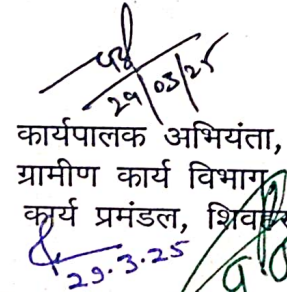 29/03/25
कार्यपालक अभियंता,
ग्रामीण कार्य विभाग
कार्य प्रमंडल,
29.3.25